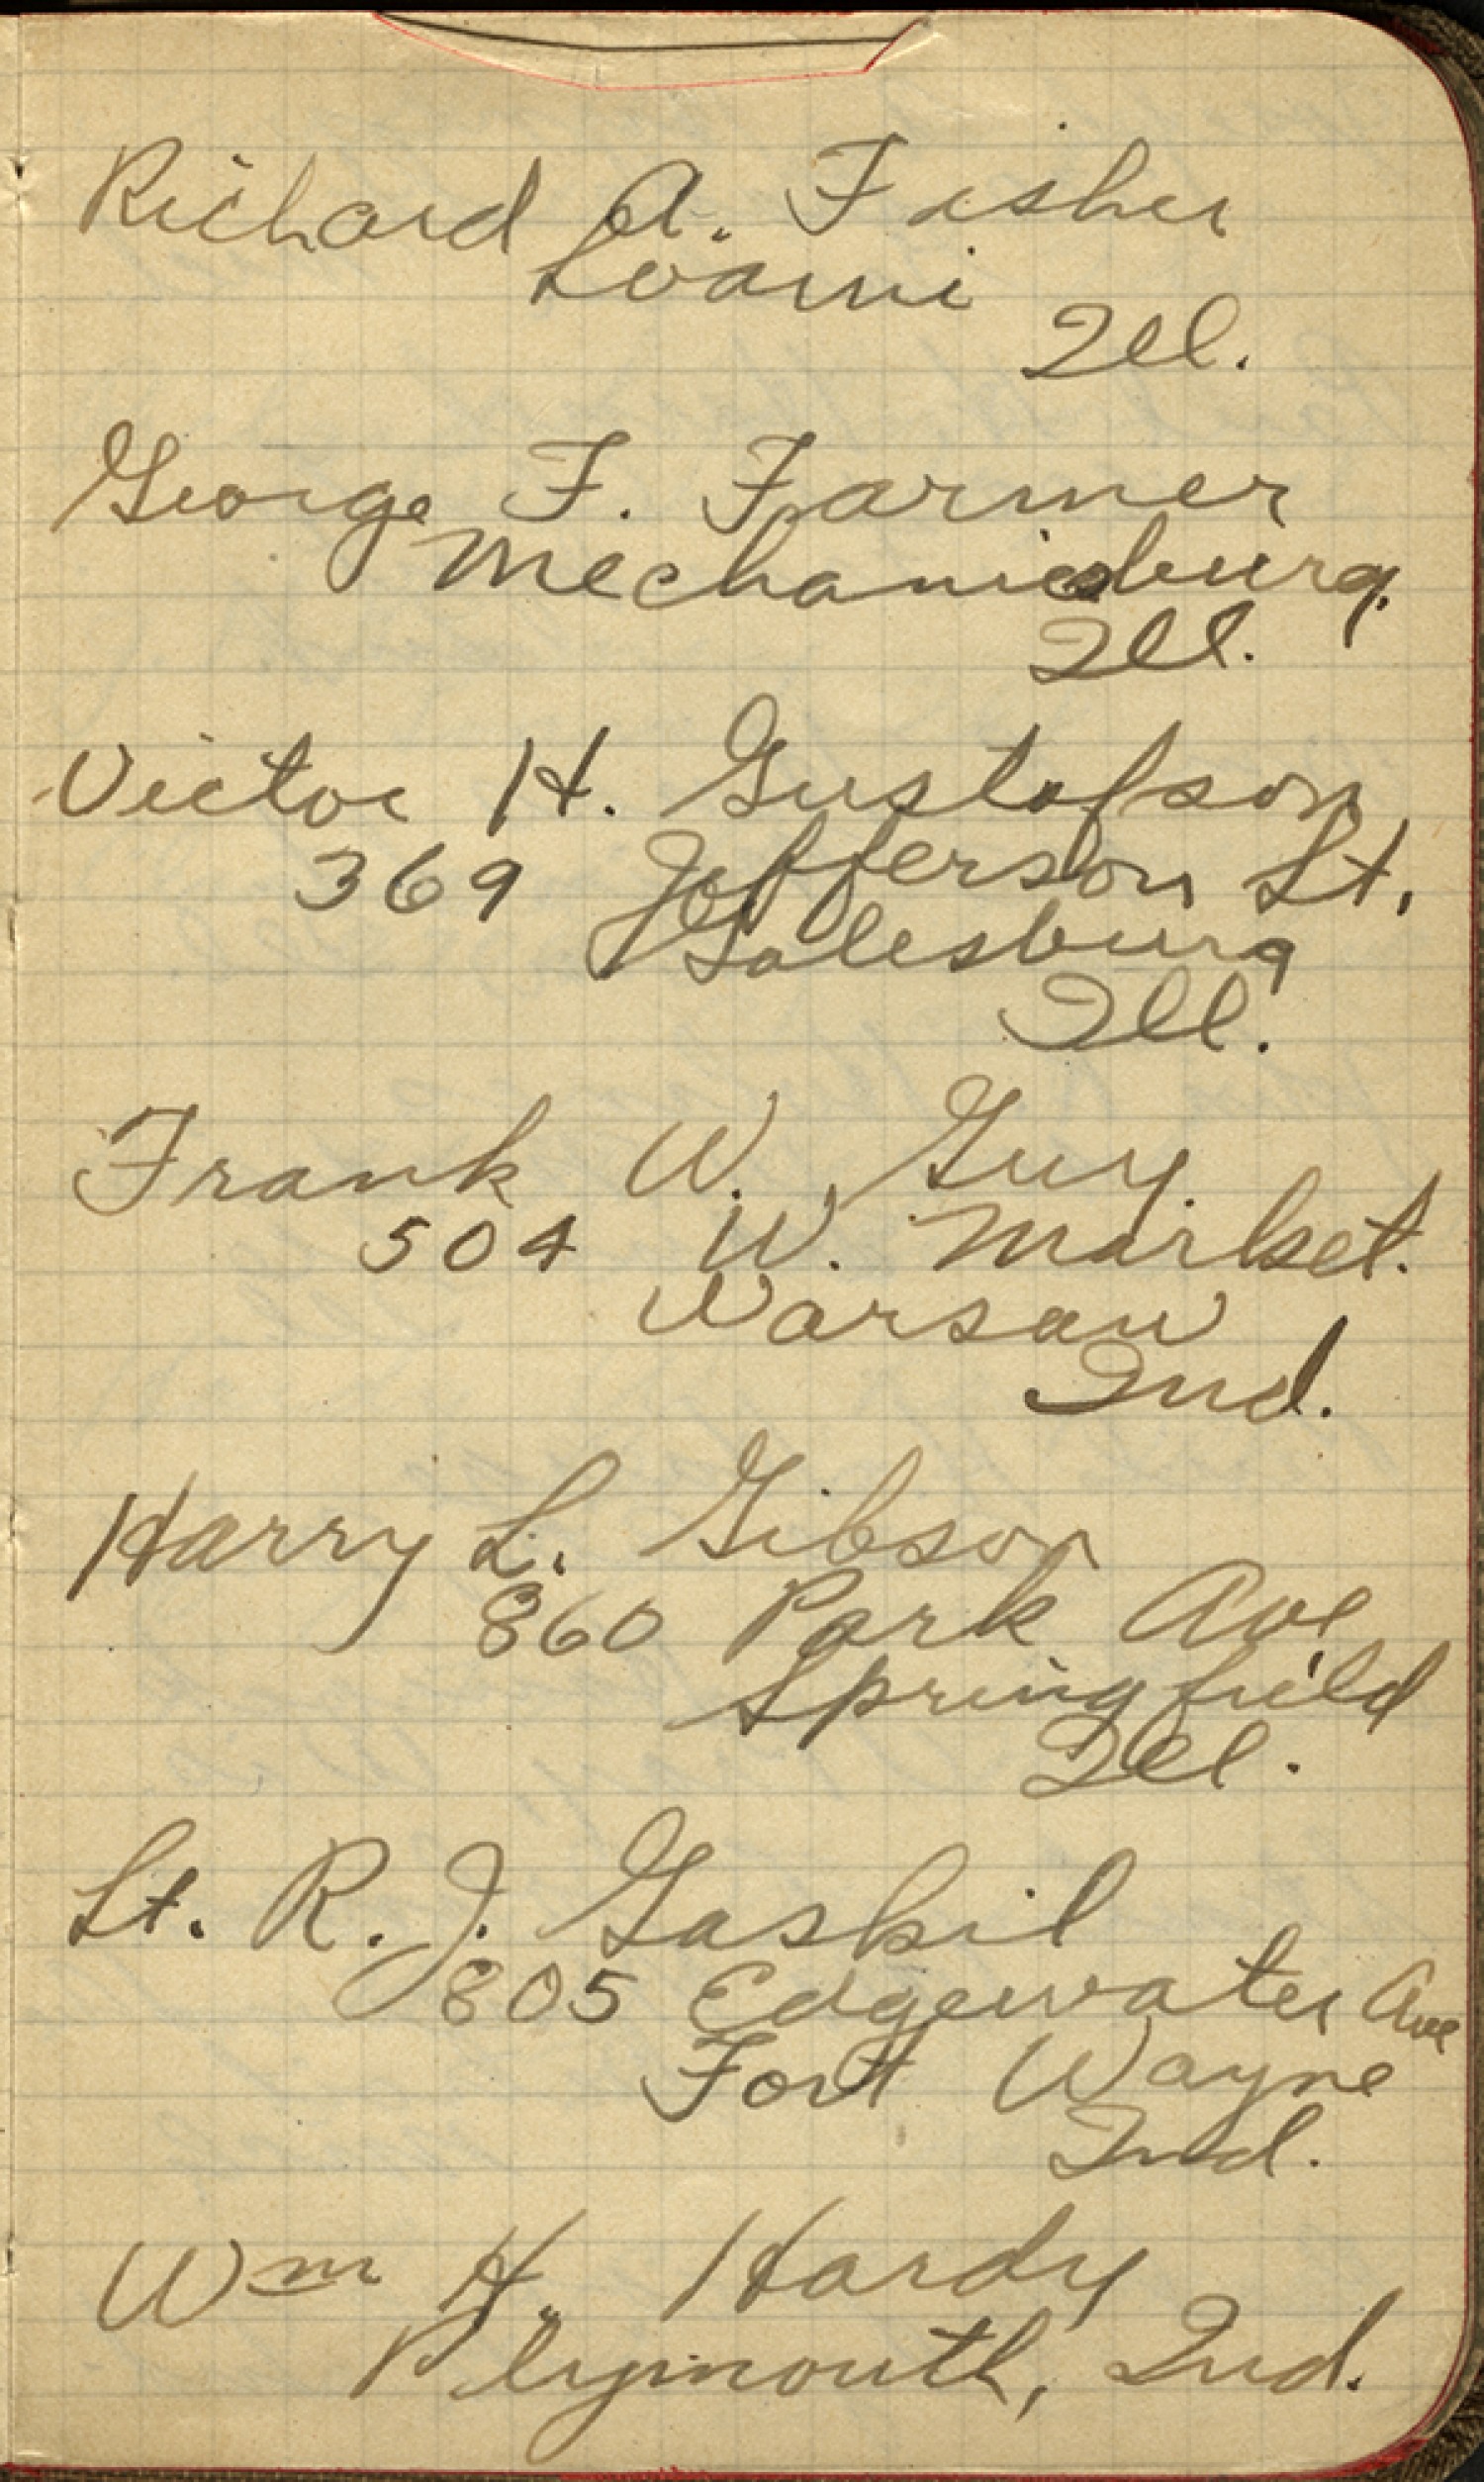 Richard A. Fisher
Loami
Ill.
George F. Farmer
Mechanicsburg.
Ill.
Victor H. Gustafson
369 Jefferson St.
Galesburg
Ill.
Frank W. Guy
504 W. Market.
Warsaw
Ind.
Harry L. Gibson
860 Park Ave,
Springfield
Ill.
Lt. R. J. Gaskil
805 Edgewater Ave
Fort Wayne
Ind.
Wm H. Hardy
Plymouth, Ind.